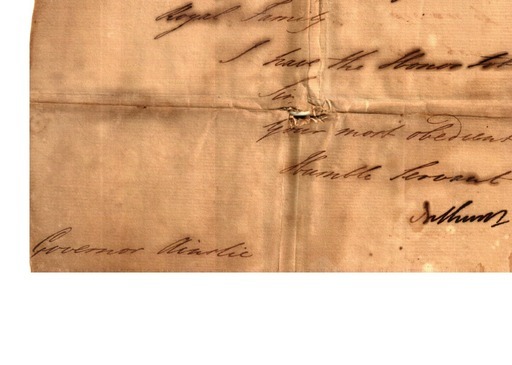 Royal Family
I have the Honor to be
Sir
Your most obedient
Humble Servant
Bathurst
Governor Ainslie